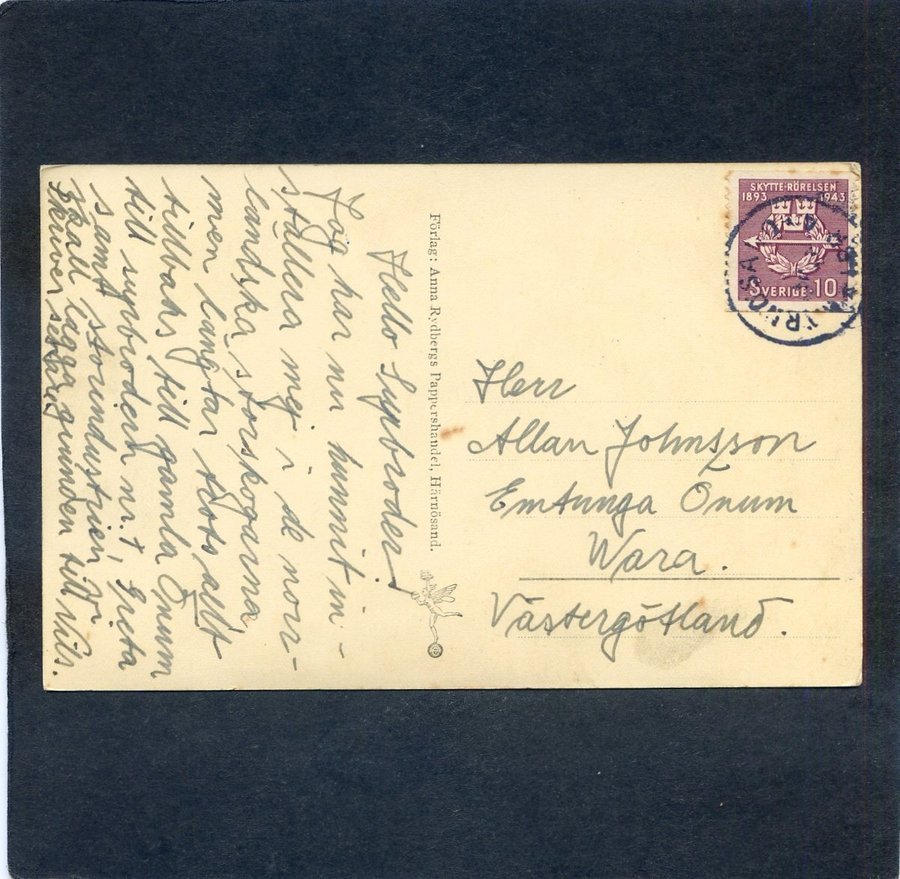 Hello Sybroder!
Jag har nu hunnit in-
ställera mig i de norr-
landska storskogarna
men langtar trots allt
tillbaks till gamla Önum
till symbrodern nr. 1, Greta
samt storindustrien v
skall lagga grunden till Nils.
skriver
Förlag: Anna Rydbergs Pappershandel, Härnösand.
SKYTTE-RÖRELSEN
1893 1943
SVERIGE·10
Herr
Allan Johnsson
Emtunga Önum
Wara.
Västergötland.